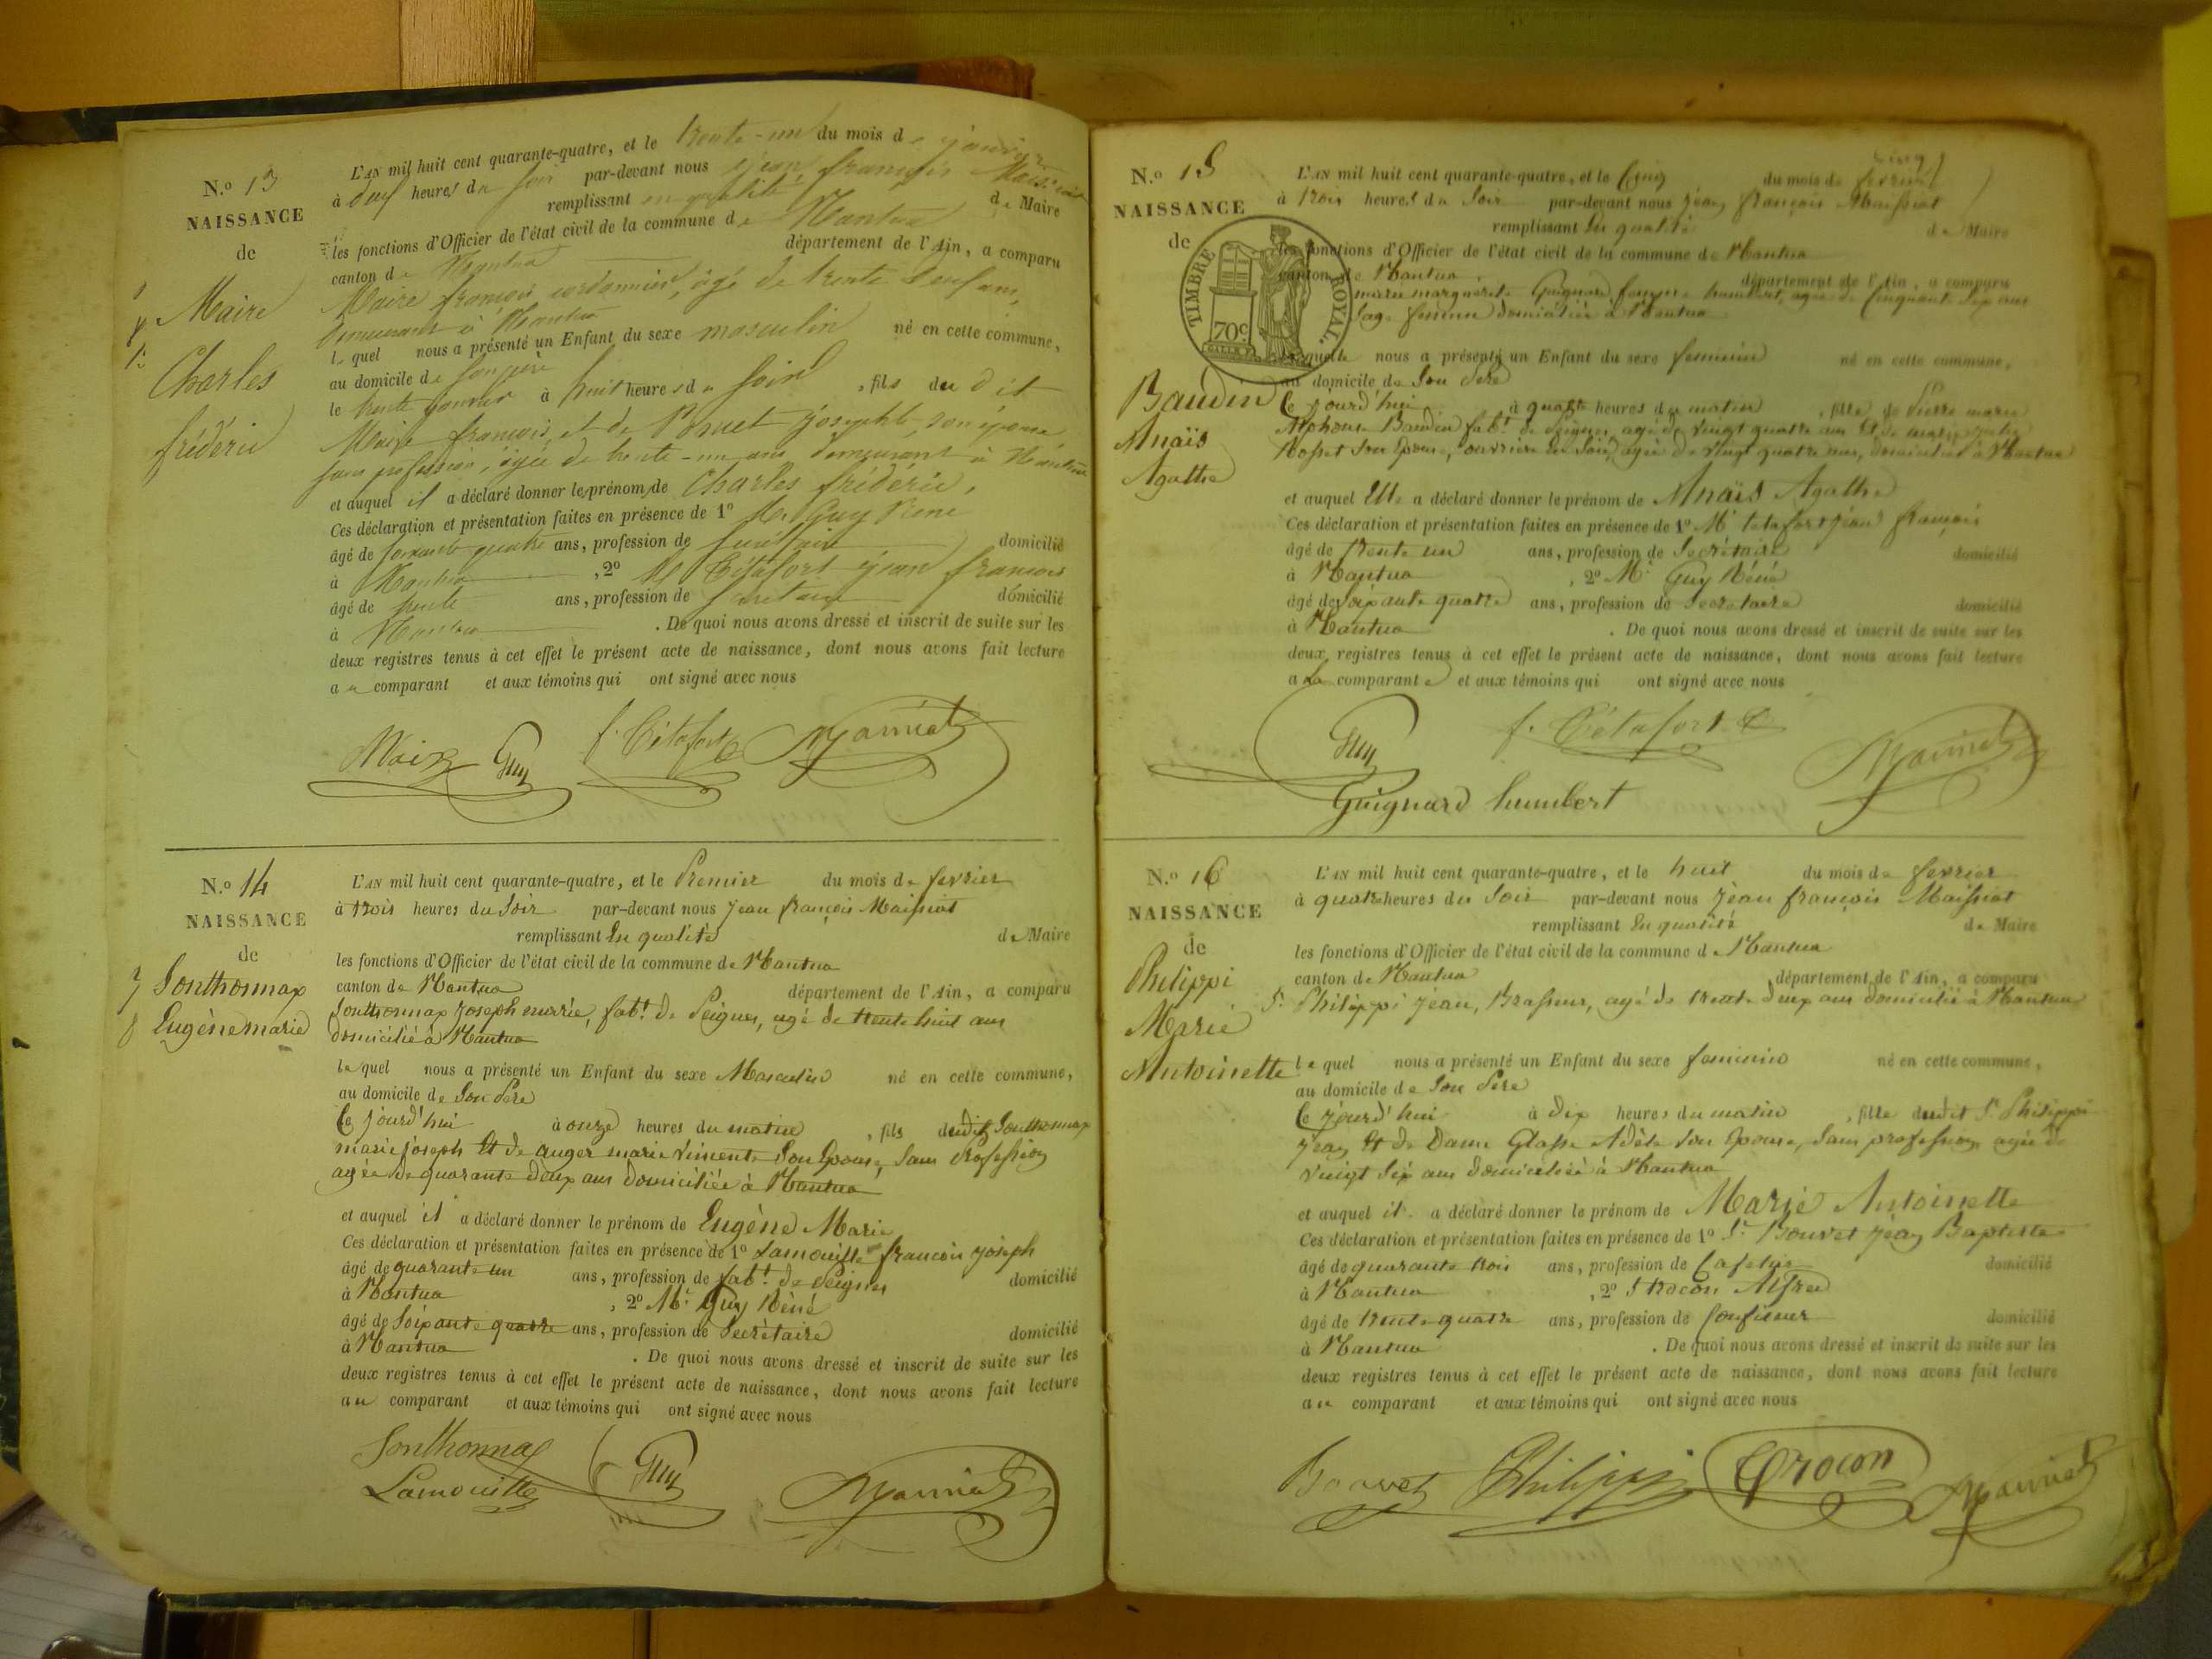 N.o 13
NAISSANCE
de
Maire
Charles
frédéric
L'AN mil huit cent quarante-quatre, et le trente-un du mois de janvier
à deux heures du soir par-devant nous jean françois Maissiat
remplissant en qualité de Maire
les fonctions d'Officier de l'état civil de la commune de Nantua
canton de Nantua département de l'Ain, a comparu
Maire françois cordonnier, âgé de trente deux ans,
demeurant à Nantua
lequel nous a présenté un Enfant du sexe masculin né en cette commune,
au domicile de son père
le trente janvier à huit heures du soir, fils du dit
Maire françois, et de josephte, son épouse,
sans profession, âgée de trente-un ans, demeurant à Nantua
et auquel il a déclaré donner le prénom de Charles frédéric,
Ces déclaration et présentation faites en présence de 1o Mr Guy Réné
âgé de soixante quatre ans, profession de secrétaire domicilié
à Nantua, 2o Mr Tétafort jean françois
âgé de trente ans, profession de secrétaire domicilié
à Nantua. De quoi nous avons dressé et inscrit de suite sur les
deux registres tenus à cet effet le présent acte de naissance, dont nous avons fait lecture
au comparant et aux témoins qui ont signé avec nous
Maire Guy f. Tétafort Maissiat
N.o 14
NAISSANCE
de
Sonthonnax
Eugène marie
L'AN mil huit cent quarante-quatre, et le Premier du mois de fevrier
à trois heures du Soir par-devant nous Jean françois Maissiat
remplissant En qualité de Maire
les fonctions d'Officier de l'état civil de la commune de Nantua
canton de Nantua département de l'Ain, a comparu
Sonthonnax Joseph marie, fabt. de Peignes, agé de trente huit ans
domicilié à Nantua
lequel nous a présenté un Enfant du sexe Masculin né en cette commune,
au domicile de Son Père
Ce jourd'hui à onze heures du matin, fils dudit Sonthonnax
marie joseph Et de auger marie Son Epouse, Sans profession
agée de quarante deux ans domiciliée à Nantua
et auquel il a déclaré donner le prénom de Eugène Marie
Ces déclaration et présentation faites en présence de 1o Lamouille françois joseph
âgé de quarante un ans, profession de fabt. de Peignes domicilié
à Nantua, 2o Mr. Guy Réné
âgé de Soixante quatre ans, profession de Secrétaire domicilié
à Nantua. De quoi nous avons dressé et inscrit de suite sur les
deux registres tenus à cet effet le présent acte de naissance, dont nous avons fait lecture
au comparant et aux témoins qui ont signé avec nous
Sonthonnax
Lamouille Guy Maissiat
N.o 15
NAISSANCE
de
Baudin
Anaïs
Agathe
TIMBRE ROYAL
70c
L'AN mil huit cent quarante-quatre, et le Cinq du mois de fevrier
à trois heures du Soir par-devant nous Jean françois Maissiat
remplissant En qualité de Maire
les fonctions d'Officier de l'état civil de la commune de Nantua
canton de Nantua département de l'Ain, a comparu
marie marguerite Guignard femme humbert, agée de Cinquante Six ans
Sage femme domiciliée à Nantua
laquelle nous a présenté un Enfant du sexe feminin né en cette commune,
au domicile de Son Père
Ce jourd'hui à quatre heures du matin, fille de Pierre marie
Alphonse Baudin fabt. de Peignes, agé de vingt quatre ans Et de marie
Rosset Son Epouse, ouvrière En Soie, agée de vingt quatre ans, domiciliés à Nantua
et auquel Elle a déclaré donner le prénom de Anaïs Agathe
Ces déclaration et présentation faites en présence de 1o Mr tetafort jean françois
âgé de trente un ans, profession de Secrétaire domicilié
à Nantua, 2o Mr. Guy Réné
âgé de Soixante quatre ans, profession de Secrétaire domicilié
à Nantua. De quoi nous avons dressé et inscrit de suite sur les
deux registres tenus à cet effet le présent acte de naissance, dont nous avons fait lecture
a la comparante et aux témoins qui ont signé avec nous
Guy f. Tétafort Maissiat
Guignard humbert
N.o 16
NAISSANCE
de
Philippi
Marie
Antoinette
L'AN mil huit cent quarante-quatre, et le huit du mois de fevrier
à quatre heures du Soir par-devant nous Jean françois Maissiat
remplissant En qualité de Maire
les fonctions d'Officier de l'état civil de la commune de Nantua
canton de Nantua département de l'Ain, a comparu
Sr. Philippi Jean, Brasseur, agé de trente deux ans domicilié à Nantua
lequel nous a présenté un Enfant du sexe feminin né en cette commune,
au domicile de Son Père
Ce jourd'hui à dix heures du matin, fille dudit Sr Philippi
Jean Et de Dame Glasse Adèle Son Epouse, Sans profession, agée de
vingt Six ans domiciliée à Nantua
et auquel il a déclaré donner le prénom de Marie Antoinette
Ces déclaration et présentation faites en présence de 1o Sr. Bouvet Jean Baptiste
âgé de quarante trois ans, profession de Cafetier domicilié
à Nantua, 2o Trocon Alfred
âgé de trente quatre ans, profession de Confiseur domicilié
à Nantua. De quoi nous avons dressé et inscrit de suite sur les
deux registres tenus à cet effet le présent acte de naissance, dont nous avons fait lecture
au comparant et aux témoins qui ont signé avec nous
Bouvet Philippi Trocon Maissiat